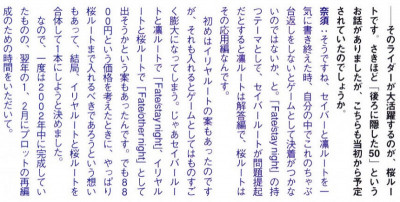 ――そのライダーが大活躍するのが、桜ルー
トです。さきほど「後ろに隠した50」という
お話がありましたが、こちらも当初から予定
されていたのでしょうか。
奈須：そうですね。セイバーと凛ルートを一
気に書き終えた時、自分の中でこれのちゃぶ
台返しをしないとゲームとして決着がつかな
いのではないか、と。「Fate/stay night」の持
つテーマとして、セイバールートが問題提起
だとすると凛ルートは解答編で、桜ルートは
その応用編なんです。
　初めはイリヤルートの案もあったのです
が、それも入れるとゲームとしてはものすご
く膨大になってしまう。じゃあセイバールー
トと凛ルートで「Fate/stay night」、イリヤル
ートと桜ルートで「Fate/other night」として
出そうかという案もあったんです。でも88
00円という価格を考えたときに、やっぱり
桜ルートまで入れるべきであろうという想い
もあって、結局、イリヤルートと桜ルートを
合体して1本にしようと決めました。
　なので、一度は2002年中に完成してい
たものの、翌年の1、2月にプロットの再編
成のための時間をいただいて。